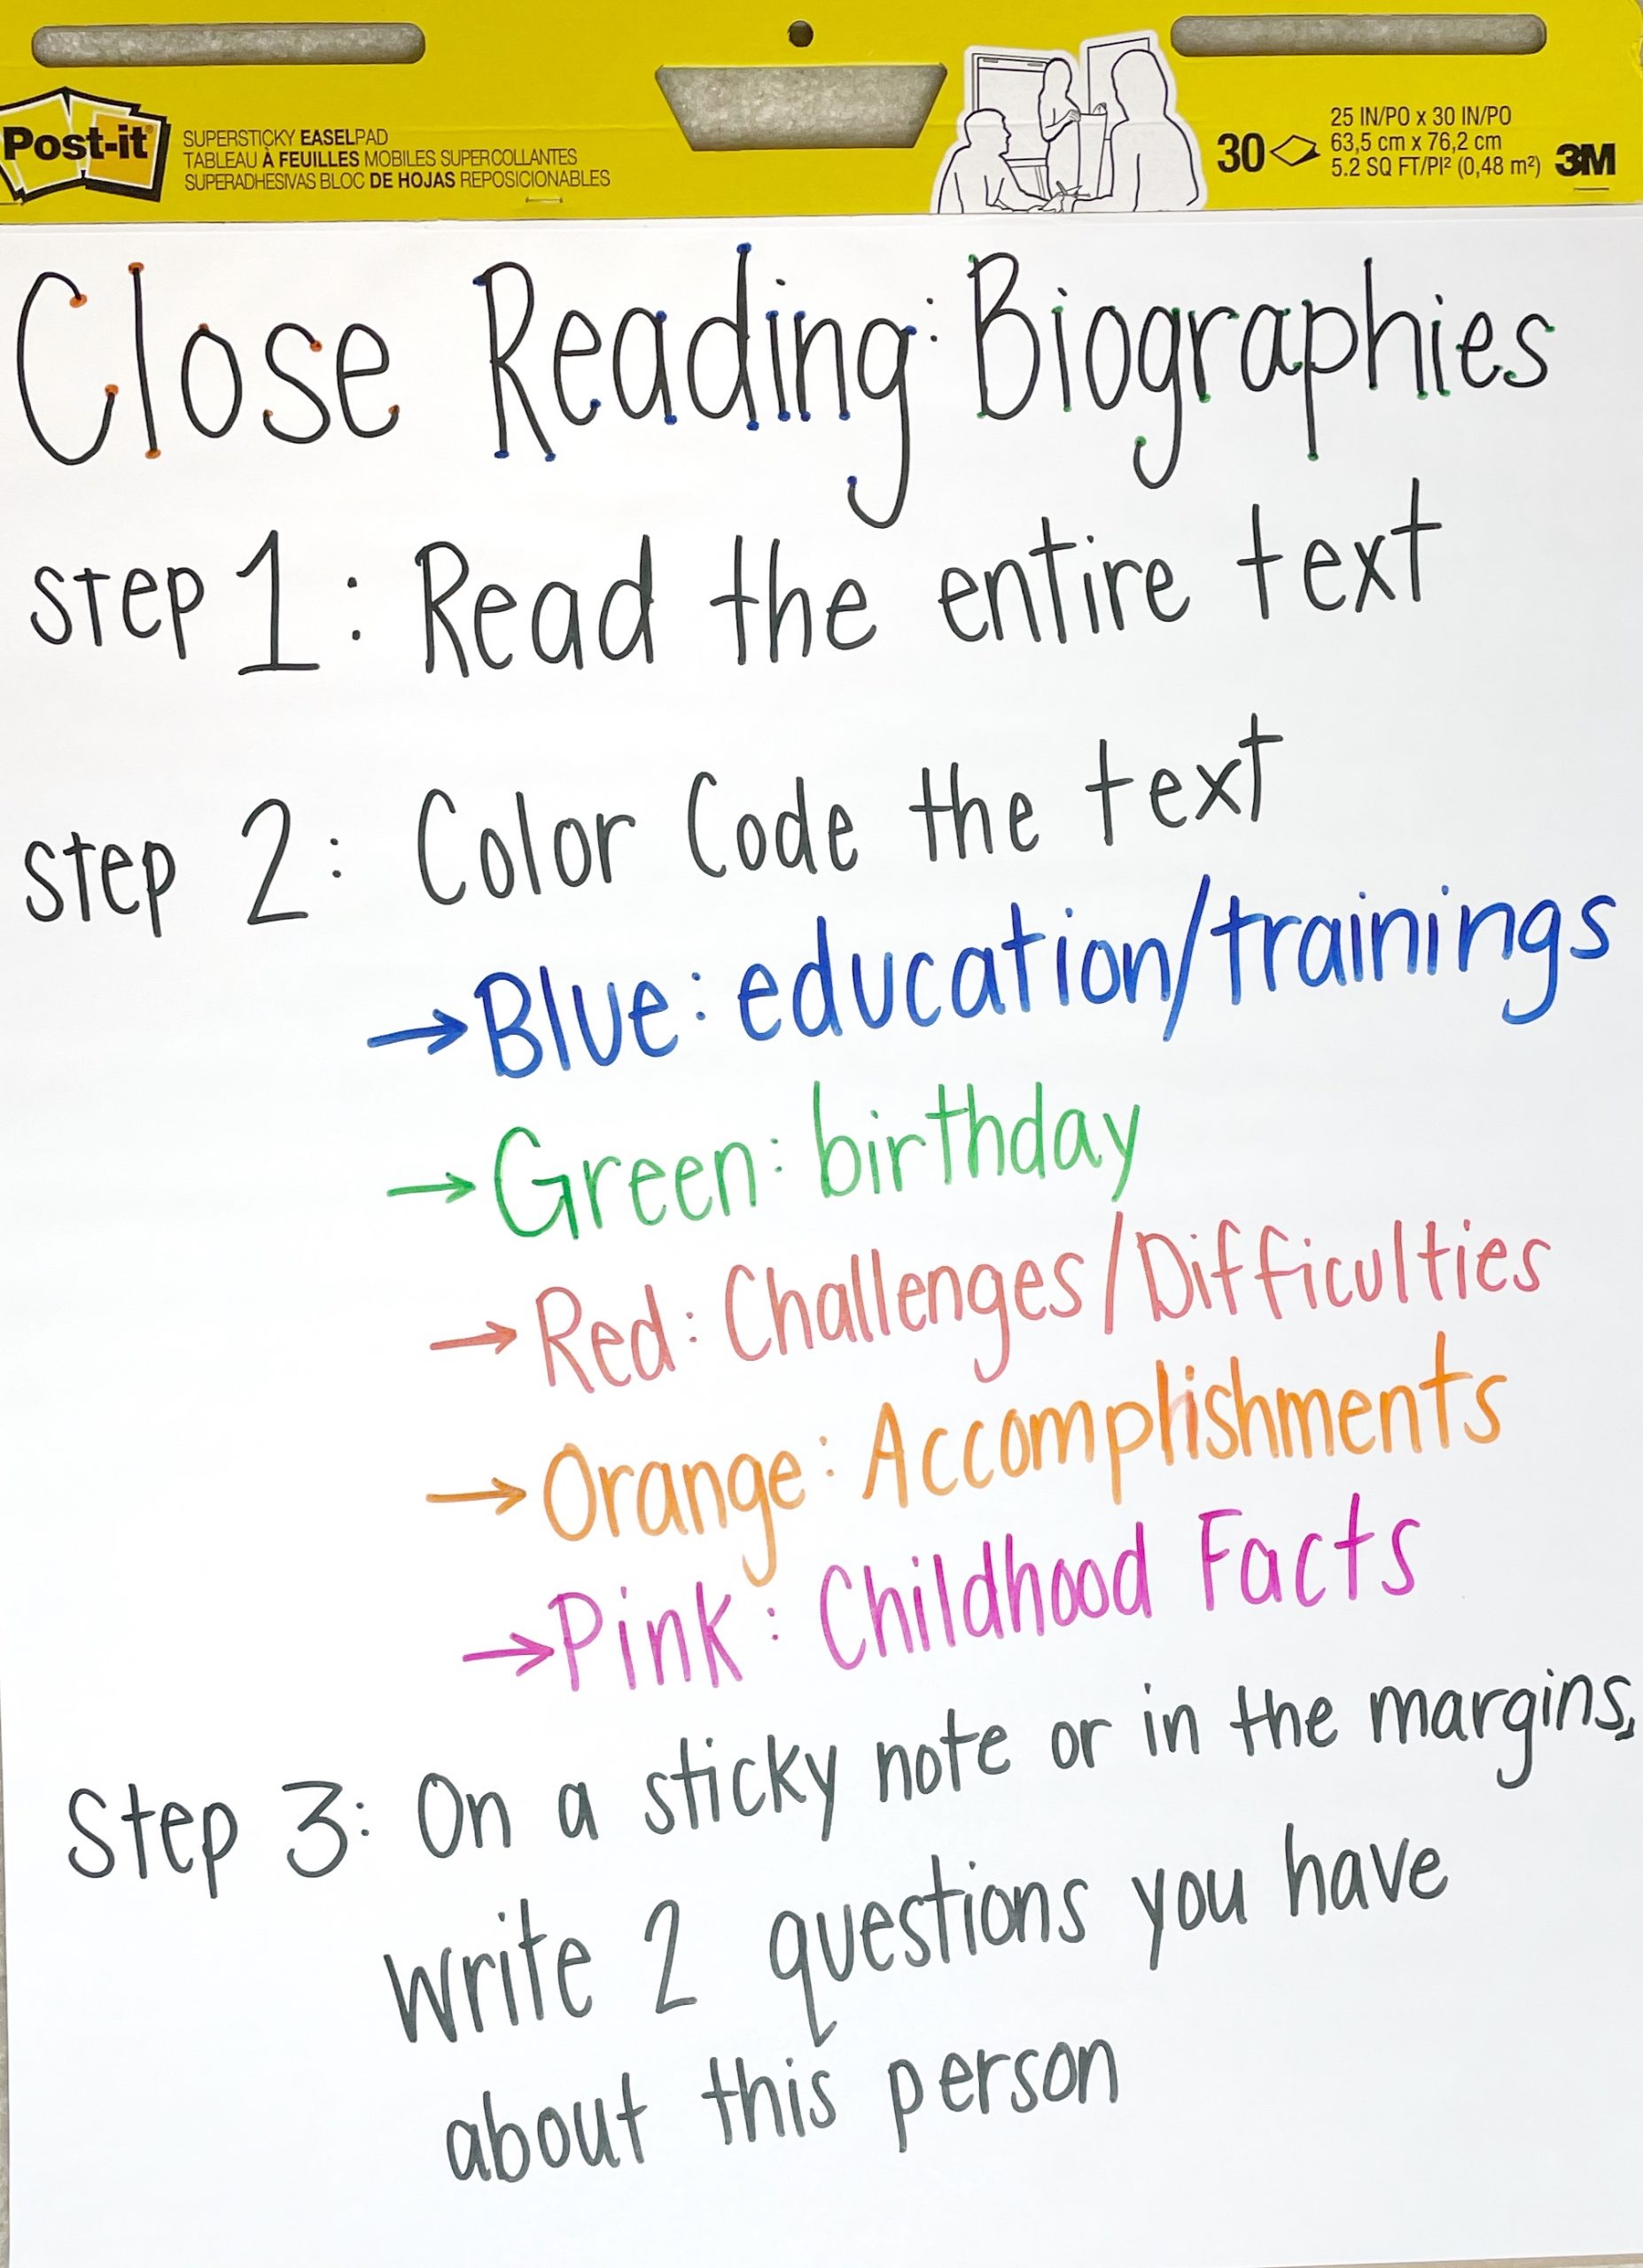 Post-it
SUPERSTICKY EASELPAD
TABLEAU À FEUILLES MOBILES SUPERCOLLANTES
SUPERADHESIVAS BLOC DE HOJAS REPOSICIONABLES
30
25 IN/PO x 30 IN/PO
63,5 cm x 76,2 cm
5.2 SQ FT/PI² (0,48 m²)
3M
Close Reading: Biographies
Step 1: Read the entire text
Step 2: Color Code the text
→ Blue: education/trainings
→ Green: birthday
→ Red: Challenges/Difficulties
→ Orange: Accomplishments
→ Pink: Childhood Facts
Step 3: On a sticky note or in the margins,
write 2 questions you have
about this person